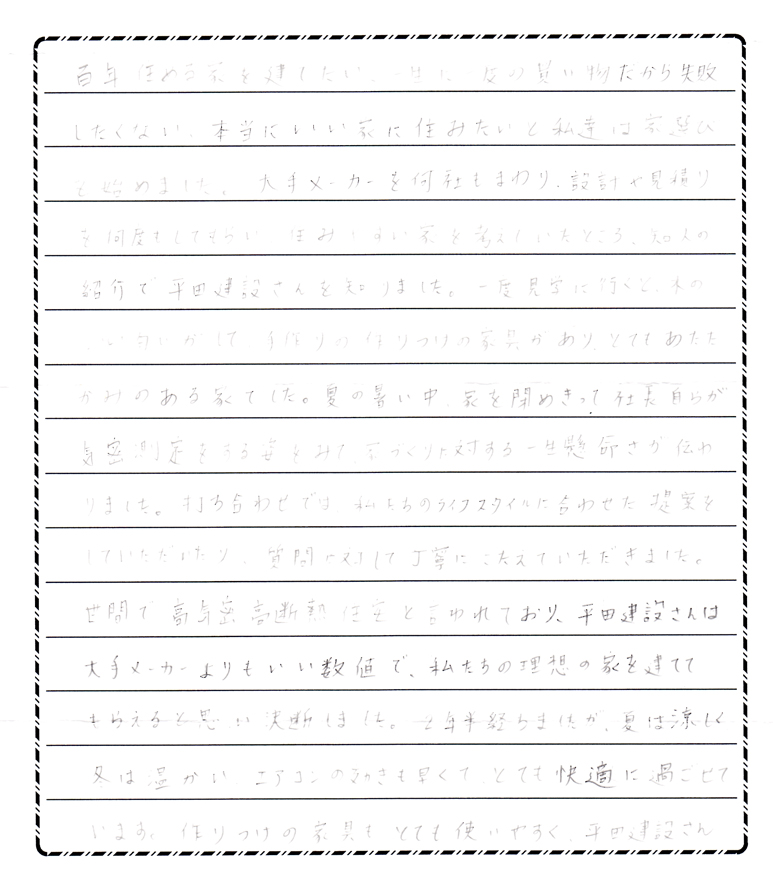 百年住める家を建てたい、一生に一度の買い物だから失敗
したくない、本当にいい家に住みたいと私達は家選び
を始めました。大手メーカーを何社もまわり、設計や見積り
を何度もしてもらい住みやすい家を考えていたところ、知人の
紹介で平田建設さんを知りました。一度見学に行くと、木の
いい匂いがして手作りの作りつけの家具があり、とてもあたた
かみのある家でした。夏の暑い中、家を閉めきって社長自らが
気密測定をする姿をみて、家づくりに対する一生懸命さが伝わ
りました。打ち合わせでは、私たちのライフスタイルに合わせた提案を
していただいたり、質問に対して丁寧にこたえていただきました。
世間で高気密高断熱住宅と言われており、平田建設さんは
大手メーカーよりもいい数値で、私たちの理想の家を建てて
もらえると思い決断しました。七年半経ちましたが、夏は涼しく
冬は温かい エアコンの効きも早くて、とても快適に過ごせて
います。作りつけの家具もとても使いやすく、平田建設さん